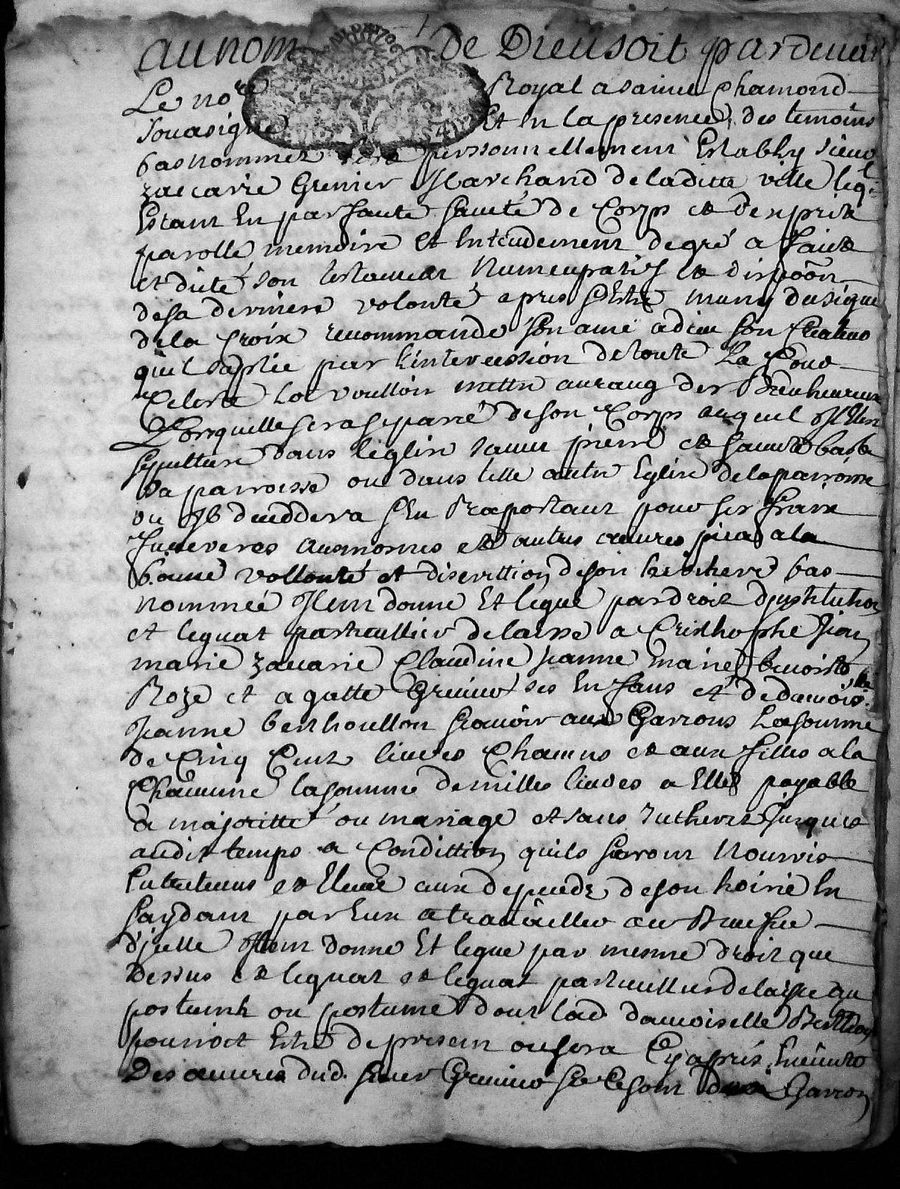 au nom de Dieu soit pardevant
Le no.re Royal a saint Chamond
Sousigné Et En la presence des temoins
bas nommez personnellement Estably sieur
zaccarie Grenier Marchand de laditte ville leql.
Estant En parfaite santé de Corps et d'esprit
parolle memoire Et Entendement de gré a fait
et dicté son testament Nuncupatif et dispoôn
de sa derniere volonté apres s'estre muny du signe
de la Croix recommande son ame a dieu son Createur
qu'il suplie par L'intercession de toute La Cour
Celeste La voulloir mettre au rang des Bienheureux
Lorsquelle sera separée de son Corps auquel Il Elit
sepulture dans l'eglise saint pierre et sainte barbe
sa parroisse ou dans telle autre Eglise de la parroisse
ou Il deceddera s'En Raportant pour ses frais
funeveres aumosnes et autres œuvres pies a la
bonne vollonté et discrettion de son heritiere bas
nommée Item donne Et legue par droit d'justitution
et lequat particullier delaisse a Cristhophe Jean
marie zacarie Claudine jeanne marie benoiste
Roze et agatte Grenier ses Enfans et de damoislle
Jeanne berthoullon scavoir aux Garcons La somme
de Cinq Cent livres Chacuns et aux filles a la
Châcune la somme de milles livres a Elles payable
a majoritté ou mariage et sans Intherest jusques
audit temps a Condittion qu'ils seront Nourris
Entretenus et Elevé aux despends de son hoirie En
s'aydant par Eux a travailler au Benefice
d'jcelle Item donne Et legue par mesme droit que
Dessus et lequat et lequat particullier delaisse au
postume ou postume dont lad. damoiselle Berthoullon
pourroit Estre de present ou sera Cy apres Enceinte
Des œuvres dud. sieur Grenier sy Ce sont Garcon